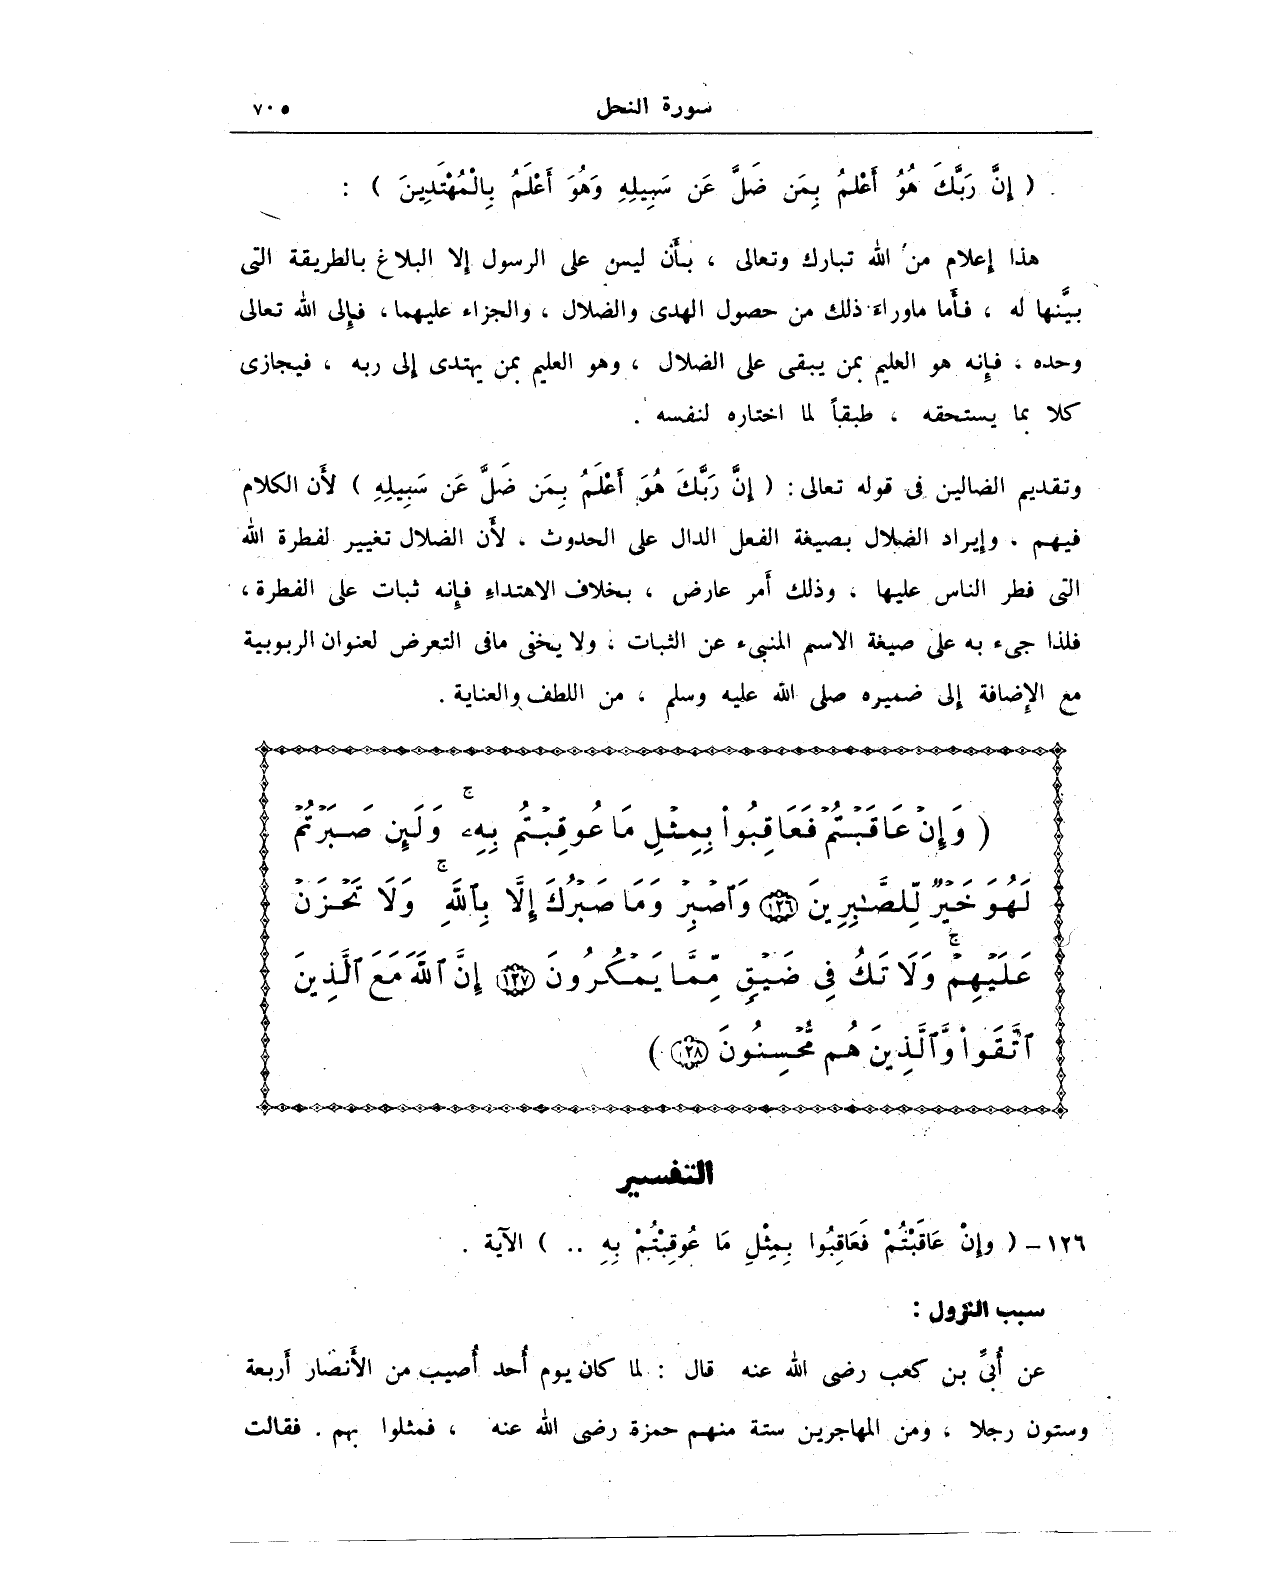 سورة النحل ٧٠٥
( إِنَّ رَبَّكَ هُوَ أَعْلَمُ بِمَن ضَلَّ عَن سَبِيلِهِ وَهُوَ أَعْلَمُ بِالْمُهْتَدِينَ ) :
هذا إعلام من الله تبارك وتعالى ، بأَن ليس على الرسول إلا البلاغ بالطريقة التى
بيَّنها له ، فأَما ماوراءَ ذلك من حصول الهدى والضلال ، والجزاء عليهما، فإِلى الله تعالى
وحده ، فإِنه هو العليم بمن يبقى على الضلال ، وهو العليم بمن يهتدى إِلى ربه ، فيجازى
كلا بما يستحقه ، طبقاً لما اختاره لنفسه .
وتقديم الضالين فى قوله تعالى: ( إِنَّ رَبَّكَ هُوَ أَعْلَمُ بِمَن ضَلَّ عَن سَبِيلِهِ ) لأَن الكلام
فيهم . وإِيراد الضلال بصيغة الفعل الدال على الحدوث ، لأَن الضلال تغيير لفطرة الله
التى فطر الناس عليها ، وذلك أَمر عارض ، بخلاف الاهتداءِ فإِنه ثبات على الفطرة ،
فلذا جىء به على صيغة الاسم المنبىء عن الثبات ، ولا يخفى مافى التعرض لعنوان الربوبية
مع الإِضافة إِلى ضميره صلى الله عليه وسلم ، من اللطف والعناية .
( وَإِنْ عَاقَبْتُمْ فَعَاقِبُواْ بِمِثْلِ مَا عُوقِبْتُم بِهِۦ ۚ وَلَئِن صَبَرْتُمْ
لَهُوَ خَيْرٌ لِّلصَّٰبِرِينَ ١٢٦ وَٱصْبِرْ وَمَا صَبْرُكَ إِلَّا بِٱللَّهِ ۚ وَلَا تَحْزَنْ
عَلَيْهِمْ ۚ وَلَا تَكُ فِى ضَيْقٍ مِّمَّا يَمْكُرُونَ ١٢٧ إِنَّ ٱللَّهَ مَعَ ٱلَّذِينَ
ٱتَّقَواْ وَّٱلَّذِينَ هُم مُّحْسِنُونَ ١٢٨ )
التفسير
١٢٦ – ( وإِنْ عَاقَبْتُمْ فَعَاقِبُوا بِمِثْلِ مَا عُوقِبْتُمْ بِهِ .. ) الآية .
سبب النزول :
عن أُبىِّ بن كعب رضى الله عنه قال : لما كان يوم أُحد أُصيب من الأَنصار أَربعة
وستون رجلا ، ومن المهاجرين ستة منهم حمزة رضى الله عنه ، فمثلوا بهم . فقالت